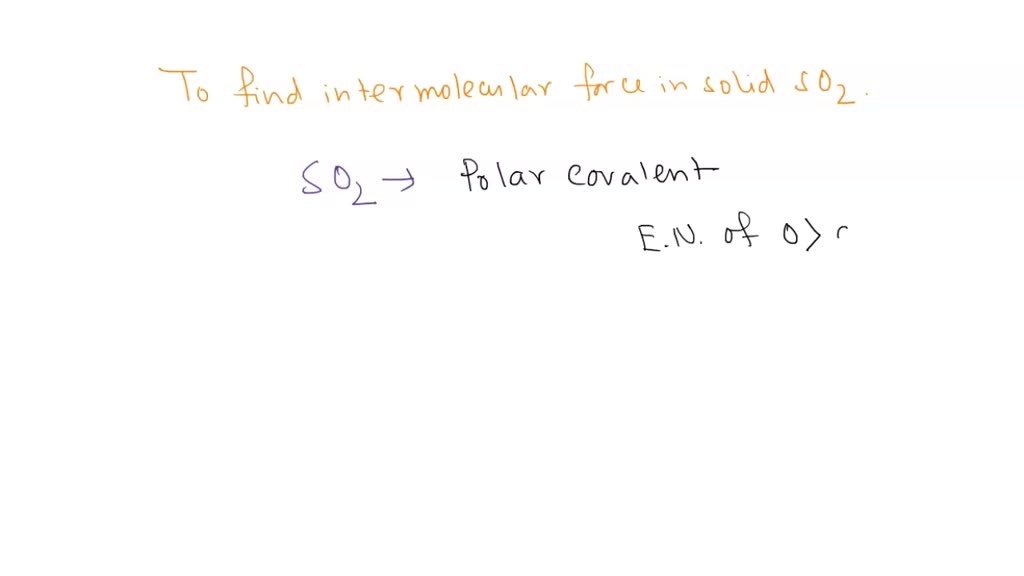 To find intermolecular force in solid SO2.
SO2 → Polar covalent
E.N. of O>